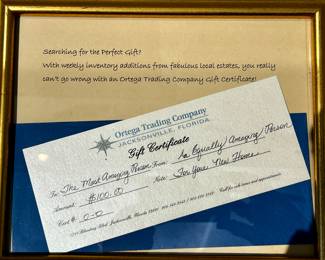 Searching for the Perfect Gift?
With weekly inventory additions from fabulous local estates, you really
can't go wrong with an Ortega Trading Company Gift Certificate!
Ortega Trading Company
JACKSONVILLE, FLORIDA
Gift Certificate
To: The Most Amazing Person From: An Equally Amazing Person
Amount: $100.00 Note: For Your New Home
Card #: 0-0
Jacksonville, Florida Call for sale times and appointments